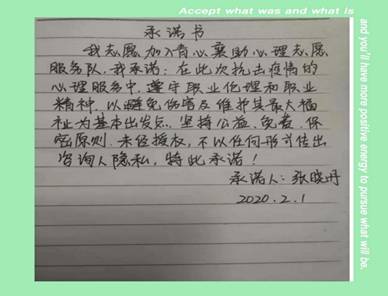 Accept what was and what is
and you'll have more positive energy to pursue what will be.
承诺书
我志愿加入青心襄助心理志愿
服务队,我承诺:在此次抗击疫情的
心理服务中,遵守职业伦理和职业
精神,以避免伤害及维护其最大福
祉为基本出发点,坚持公益、免费、保
密原则,未经授权,不以任何形式传出
咨询人隐私,特此承诺!
承诺人:张晓丹
2020.2.1